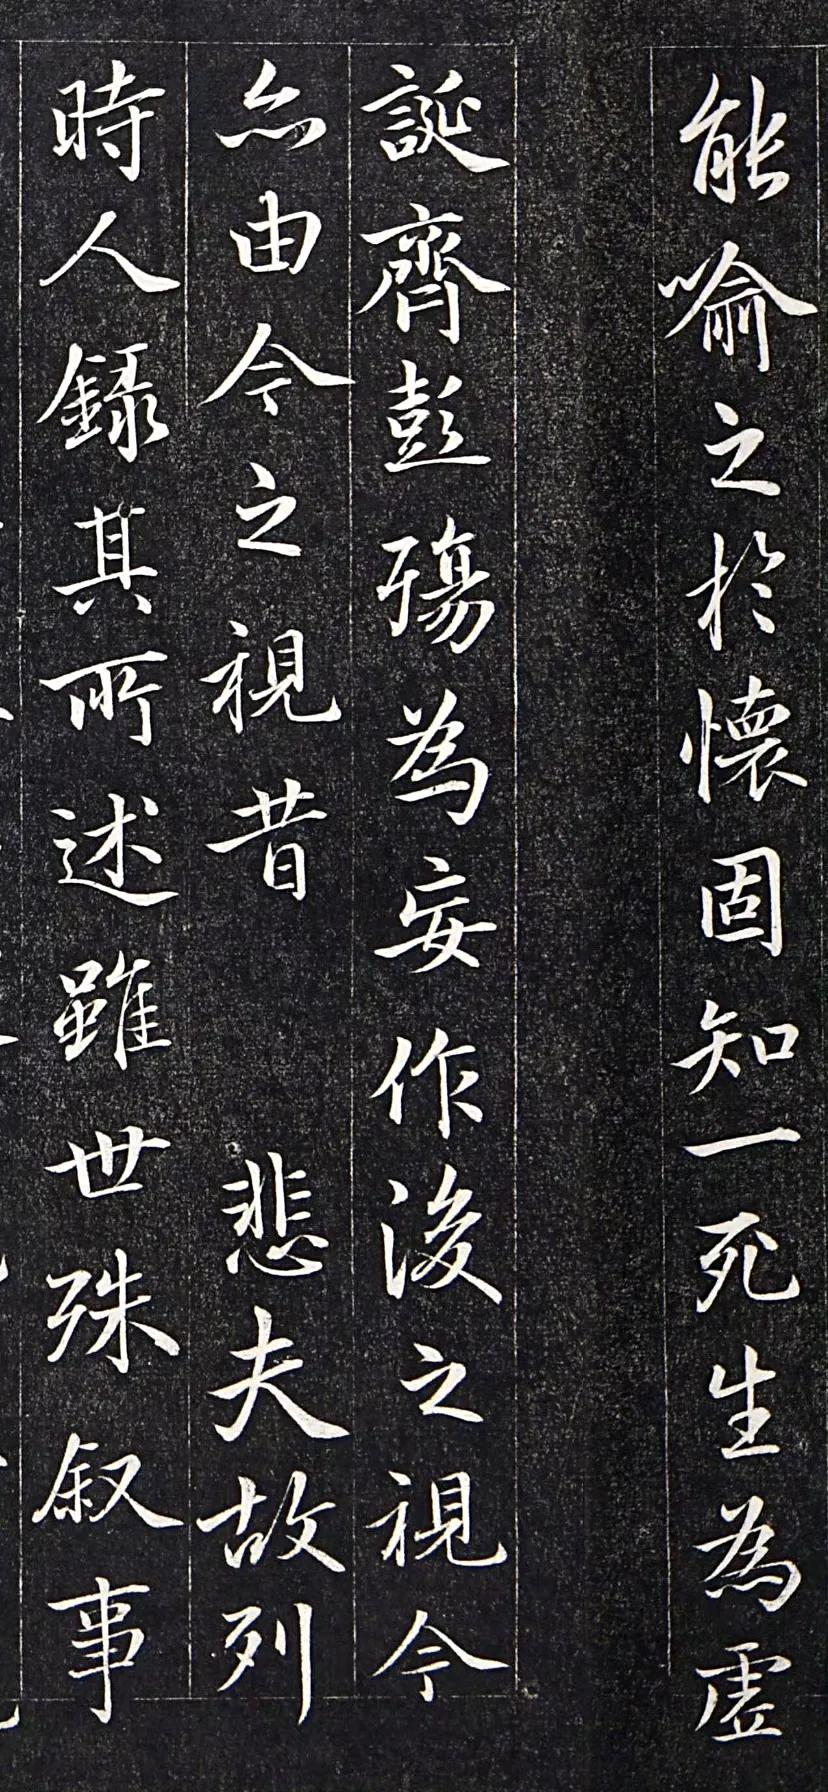 能喻之於懷固知一死生為虛
誕齊彭殤為妄作後之視今
亦由今之視昔 悲夫故列
時人錄其所述雖世殊叙事